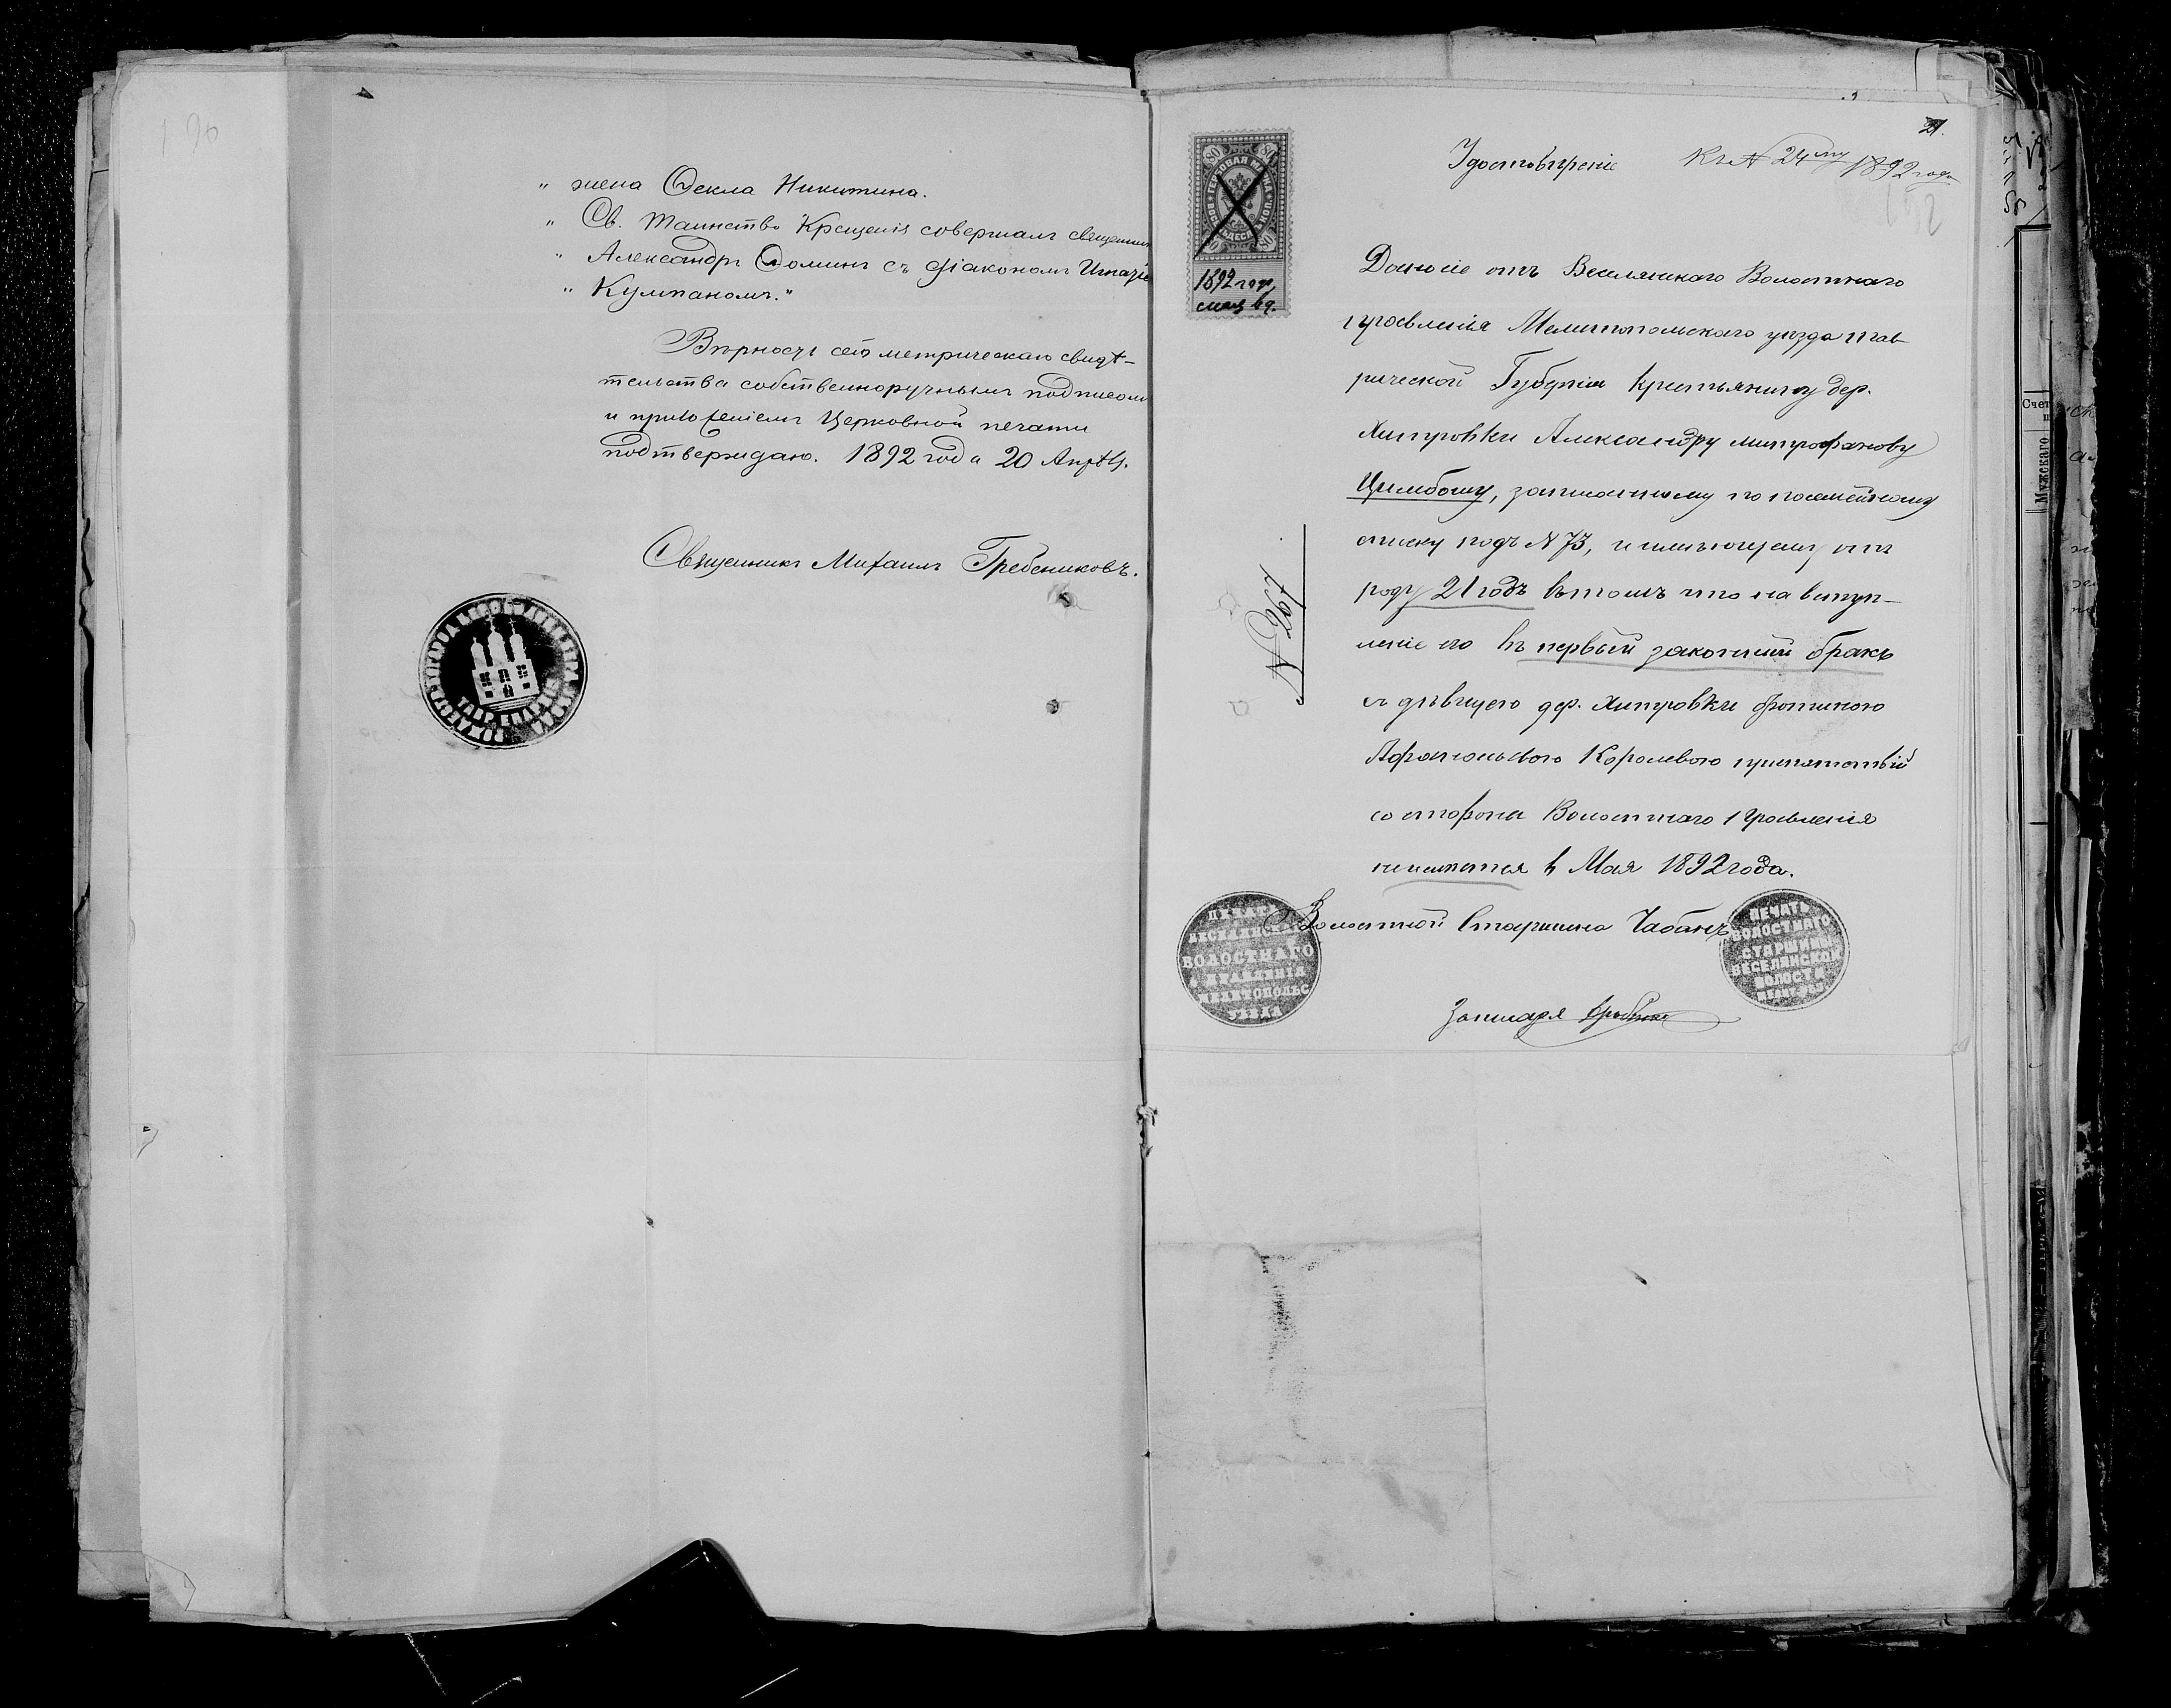 " жена Ѳекла Никитина.
" Св. Таинство Крещенія совершалъ священникъ
" Александръ Ѳоминъ съ діакономъ Игнатіе
" Кулпакомъ."
Вѣрность сего метрическаго свидѣ-
тельства собственноручнымъ подписомъ
и приложеніемъ Церковной печати
подтверждаю. 1892 года 20 Апрѣля.
Священникъ Михаилъ Гребениковъ.
ТАВР. ЕПАРХІИ
21.
Удостовѣреніе
Къ № 24му 1892 года
80 80
ГЕРБОВАЯ МАРКА
ВОСЕМЬДЕСЯТЪ КОП.
1892 года
№ 267
Дано сіе отъ Веселянскаго Волостнаго
Правленія Мелитопольскаго уѣзда Тав-
рической Губерніи крестьянину дер.
Хитровки Александру Митрофанову
Цымбалу, записанному по посемейному
списку подъ № 73, и имѣющему отъ
роду 21 годъ въ томъ что на вступ-
леніе его въ первый законный бракъ
съ дѣвицею дер. Хитровки Фотиною
Афанасьевою Королевою препятствій
со стороны Волостнаго Правленія
неимѣется Мая 1892 года.
Волостной Старшина Чабанъ
За писаря
ПЕЧАТЬ
ВЕСЕЛЯНСКАГО
ВОЛОСТНАГО
ПРАВЛЕНІЯ
МЕЛИТОПОЛЬС
УѢЗДА
ПЕЧАТЬ
ВОЛОСТНАГО
СТАРШИНЫ
ВЕСЕЛЯНСКОЙ
ВОЛОСТИ
Счет
Мужескаго